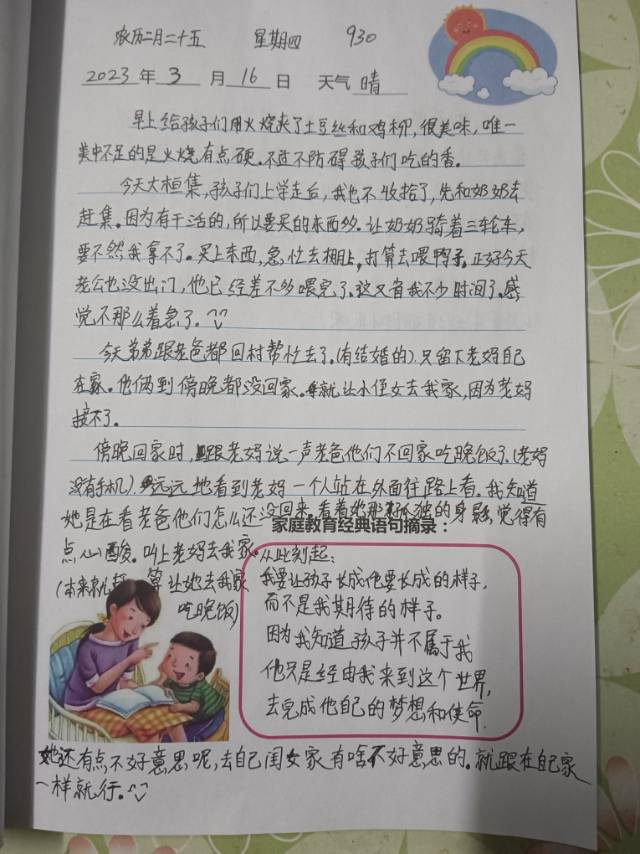 农历二月二十五 星期四 930
2023 年 3 月 16 日 天气 晴
早上给孩子们用火烧夹了土豆丝和鸡柳,很美味,唯一
美中不足的是火烧有点硬。不过不防碍孩子们吃的香。
今天大桓集,孩子们上学走后,我也不收拾了,先和奶奶去
赶集。因为有干活的,所以要买的东西多。让奶奶骑着三轮车,
要不然我拿不了。买上东西,急忙去棚上,打算去喂鸭子。正好今天
老公也没出门,他已经差不多喂完了。这又省我不少时间了。感
觉不那么着急了。
今天弟弟跟老爸都回村帮忙去了。(有结婚的)。只留下老妈自己
在家。他俩到傍晚都没回家。就让小侄女去我家,因为老妈
接不了。
傍晚回家时,跟老妈说一声老爸他们不回家吃晚饭了。(老妈
没有手机)。远远地看到老妈一个人站在外面往路上看。我知道
她是在看老爸他们怎么还没回来。看着她那孤独的身影,觉得有
家庭教育经典语句摘录:
点心酸。叫上老妈去我家。
(本来就打算让她去我家
吃晚饭)
从此刻起:
我要让孩子长成他要长成的样子,
而不是我期待的样子。
因为我知道孩子并不属于我
他只是经由我来到这个世界,
去完成他自己的梦想和使命.
她还有点不好意思呢,去自己闺女家有啥不好意思的。就跟在自己家
一样就行。